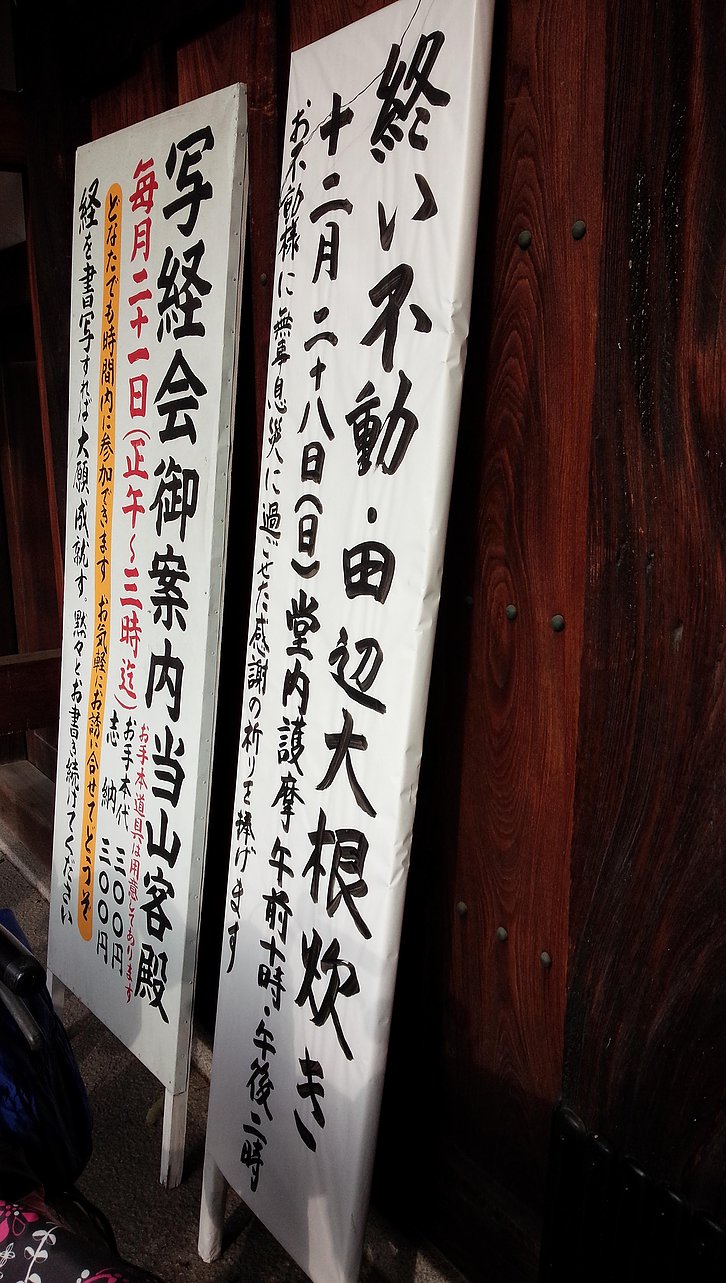 終い不動・田辺大根炊き
十二月二十八日(日)堂内護摩 午前十時・午後二時
お不動様に無事息災に過ごせた感謝の祈りを捧げます
写経会御案内当山客殿
毎月二十一日(正午〜三時迄)
お手本道具は用意してあります
お手本代 三〇〇円
志納 三〇〇円
どなたでも時間内に参加できます お気軽にお誘い合せてどうぞ
経を書写すれば大願成就す。黙々とお書き続けてください